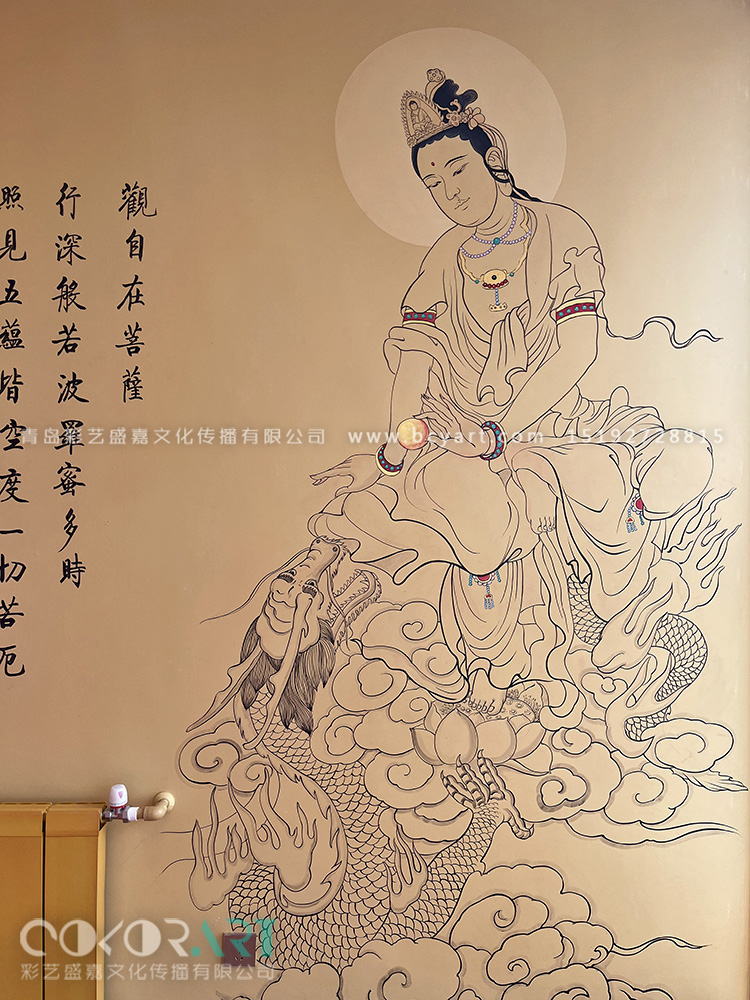 觀自在菩薩
行深般若波羅蜜多時
照見五蘊皆空度一切苦厄
青岛彩艺盛嘉文化传播有限公司 www.bcyart.com 15192728815
COLOR.ART
彩艺盛嘉文化传播有限公司